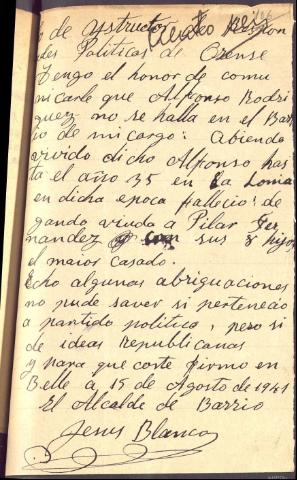 de ystructor
ciento seis
106
des Políticas de Orense
Tengo el honor de comu
nicarle que Alfonso Rodri
guez no se halla en el Bar
rio de mi cargo: Abiendo
vivido dicho Alfonso has
ta el año 35 en La Loma
en dicha epoca fallecio: de
gando viuda a Pilar Fer
nandez y con sus 8 hijos
el maior casado.
Echo algunas abriguaciones
no pude saver si pertenecio
a partido politica, pero si
de ideas Republicanas
y para que corte firmo en
Belle a, 15 de Agosto de 1941
El Alcalde de Barrio
Jesus Blanco